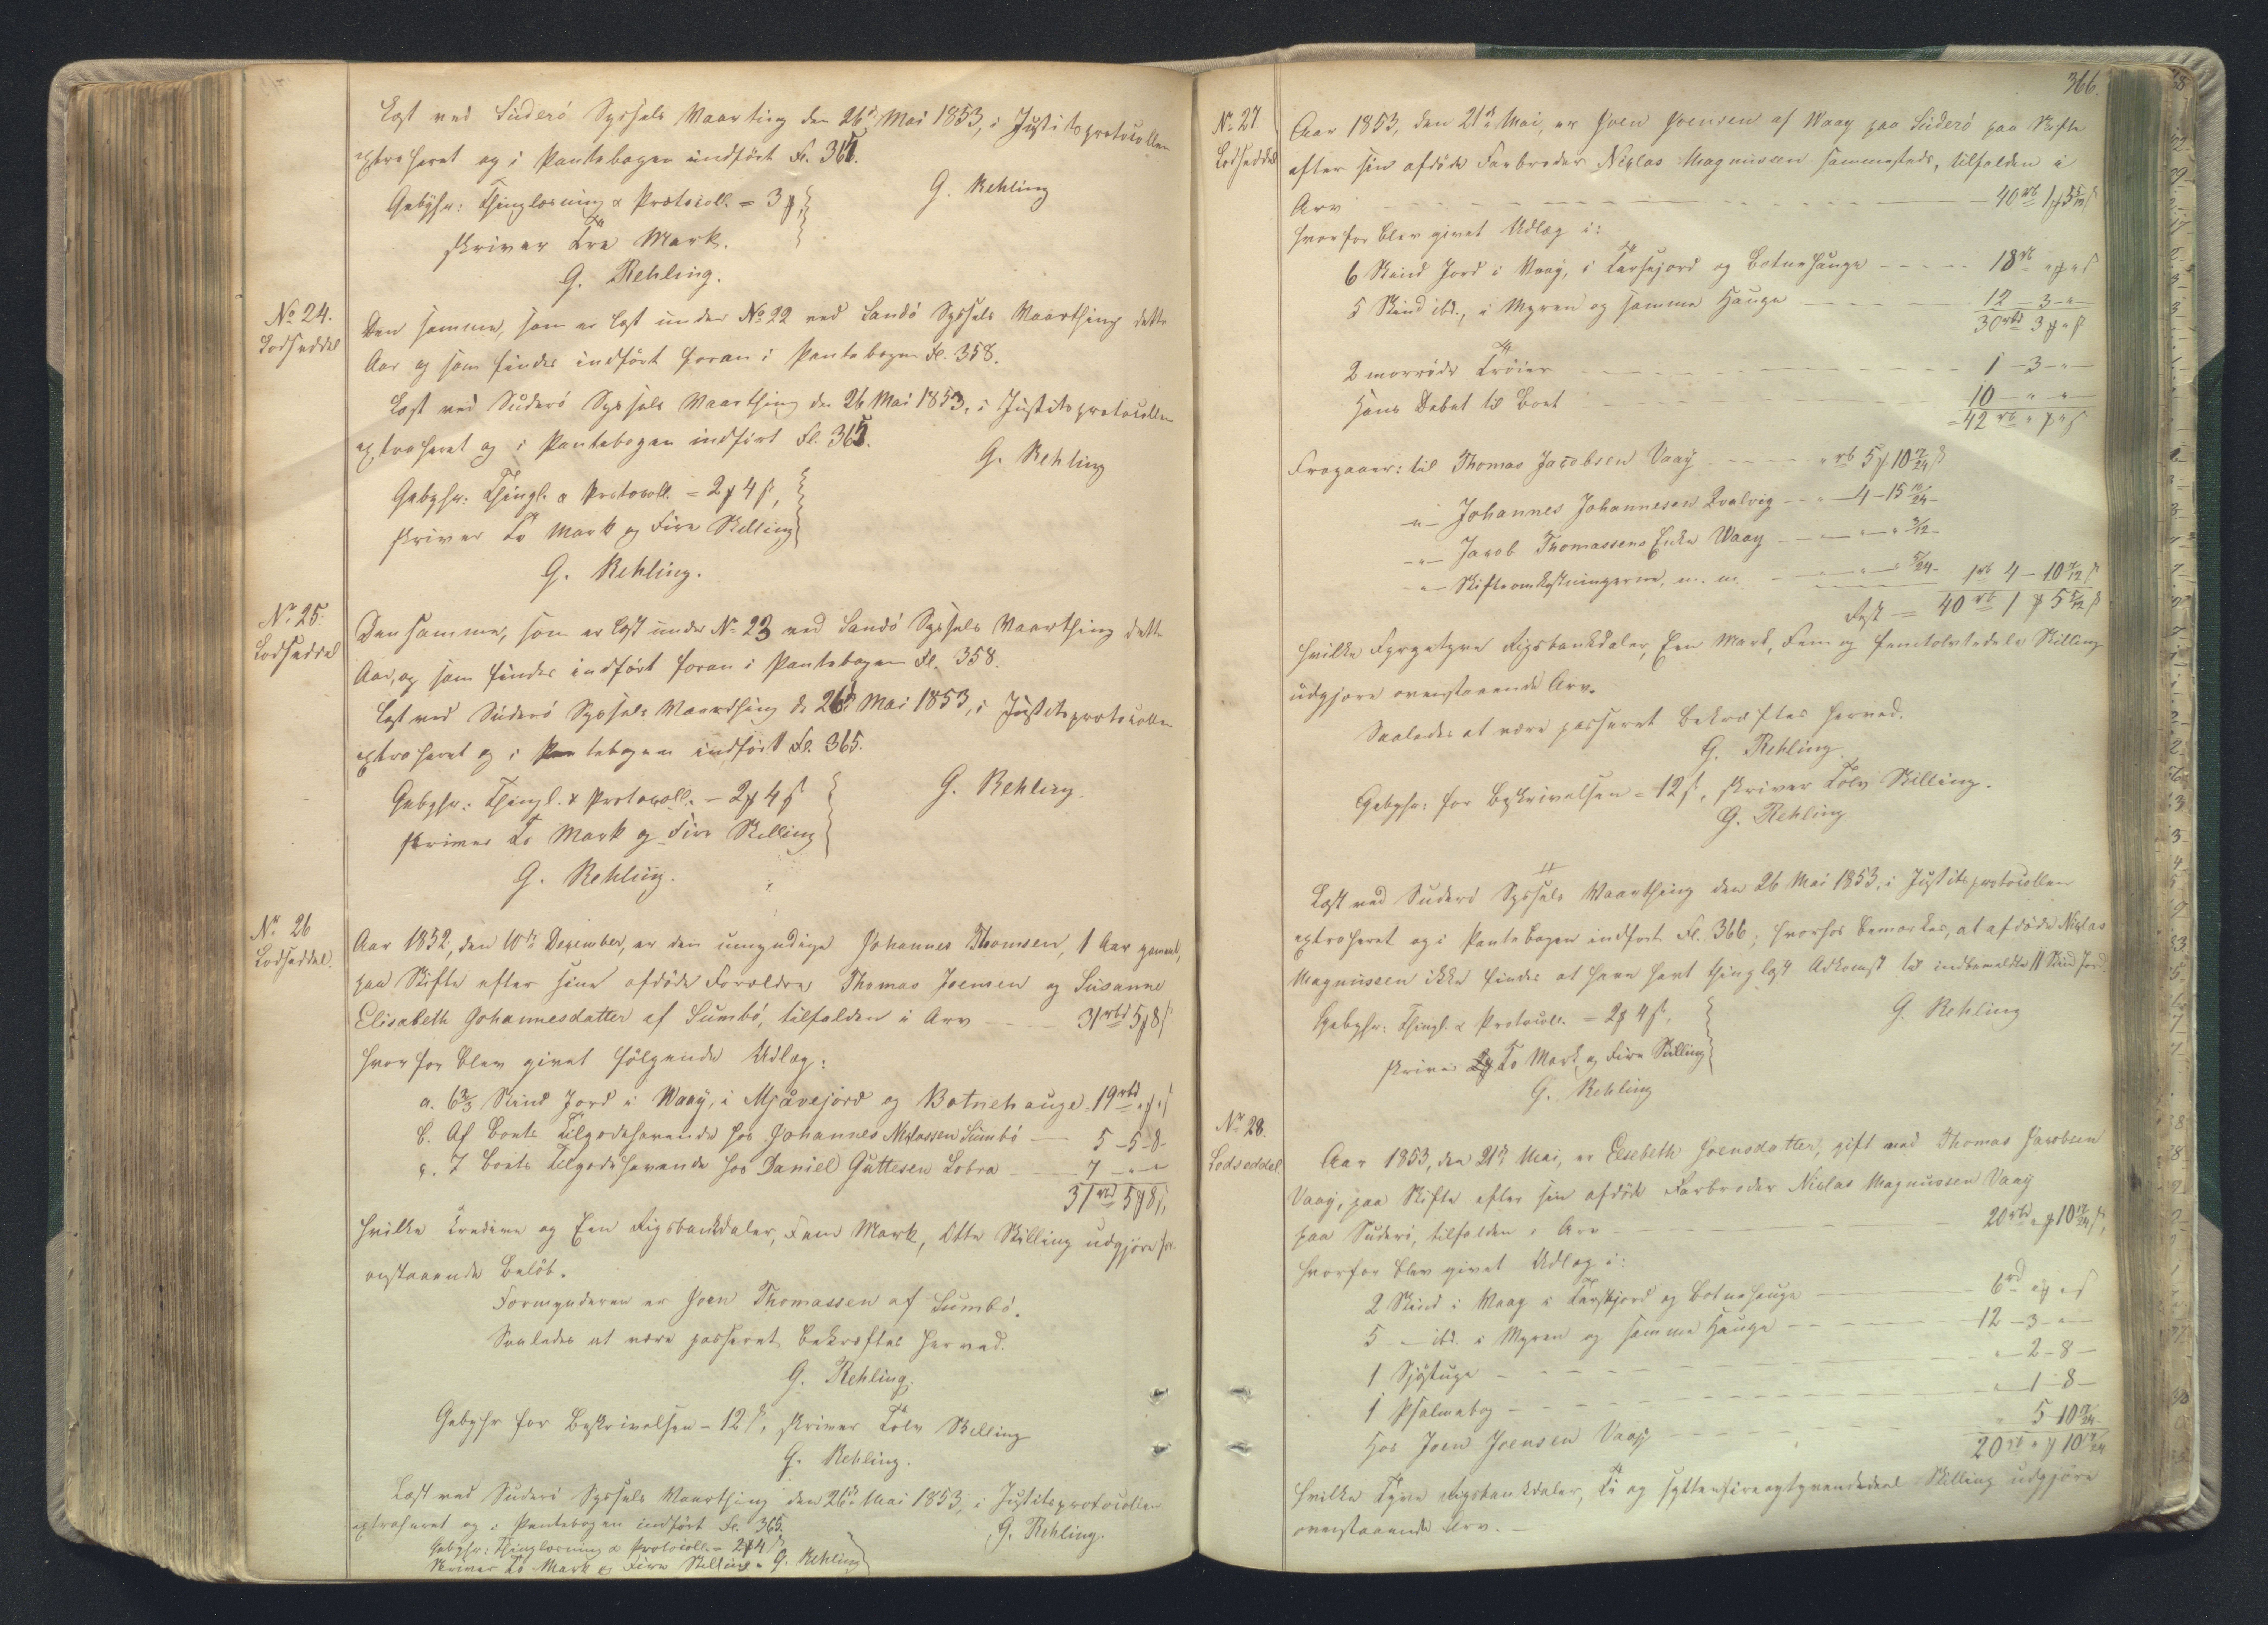 Læst ved Süderö Syssels Vaarting den 26de Mai 1853, i Justitsprotocollen
extraheret og i Pantebogen indført Fl. 365.
G. Rehling
Gebyhr: Thinglæsning & Protocoll. = 3 ₻
skriver Tre Mark.
G. Rehling.
No 24.
Lodseddel
Den samme, som er læst under No 22 ved Sandö Syssels Vaarthing dette
Aar og som findes indført foran i Pantebogen Fl. 358.
Læst ved Suderö Syssels Vaarthing den 26 Mai 1853, i Justitsprotocollen
extraheret og i Pantebogen indført Fl. 365.
G. Rehling
Gebyhr: Thingl. & Protocoll. = 2 ₻ 4 ß,
skriver To Mark og Fire Skilling
G. Rehling.
No 25.
Lodseddel
Den samme, som er læst under No 23 ved Sandö Syssels Vaarthing dette
Aar, og som findes indført foran i Pantebogen Fl. 358.
Læst ved Süderö Syssels Vaarthing d. 26de Mai 1853, i Justitsprotocollen
extraheret og i Pantebogen indført Fl. 365.
G. Rehling.
Gebyhr: Thingl. & Protocoll. - 2 ₻ 4 ß
skriver To Mark og Fire Skilling
G. Rehling.
No 26
Lodseddel.
Aar 1852, den 10de Dezember, er den umyndige Johannes Thomsen, 1 Aar gammel,
paa Skifte efter sine afdöde Forældre Thomas Joensen og Susanne
Elisabeth Johannesdatter af Sumbö, tilfalden i Arv - - - 31 rbd 5 ₻ 8 ß
hvorfor blev givet fölgende Udlæg:
a. 6 2/3 Skind Jord i Waag, i Mjåvejord og Botnehauge 19 rbd " ₻ " ß
b. Af Boets Tilgodehavende hos Johannes Niclassen Sumbö — 5 - 5 - 8 -
c. I Boets Tilgodehavende hos Daniel Guttesen Lobra — 7 - " - "
31 rbd 5 ₻ 8 ß,
hvilke Tredive og Een Rigsbankdaler, Fem Mark, Otte Skilling udgjöre for-
anstaaende Belöb.
Formynderen er Joen Thomassen af Sumbö.
Saaledes at være passeret, bekræftes herved.
G. Rehling.
Gebyhr for Beskrivelsen - 12 ß, skriver Tolv Skilling
G. Rehling.
Læst ved Suderö Syssels Vaarthing den 26de Mai 1853, i Justitsprotocollen
extraheret og i Pantebogen indført Fl. 365.
G. Rehling.
Gebyhr: Thinglæsning & Protocoll. = 2 ₻ 4 ß
Skriver To Mark og Fire Skilling - G. Rehling
366.
No 27
Lodseddel
Aar 1853, den 21de Mai, er Joen Joensen af Waag paa Süderö paa Skifte
efter sin afdöde Farbroder Niclas Magnussen sammesteds, tilfalden i
Arv - - - 40 rb 1 ₻ 5 5/12 ß
hvorfor blev givet Udlæg i:
6 Skind Jord i Waag, i Tarfejord og Botnehauge - - - 18 rb " ₻ " ß
5 Skind ibd., i Myren og samme Hauge - - - 12 - 3 - " -
30 rbd 3 ₻ " ß
2 morröde Tröier - - - 1 - 3 - " -
Hans Debet til Boet - - - 10 - " - " -
= 42 rb " ₻ " ß
Fragaaer: til Thomas Jacobsen Vaag - - - " rb 5 ₻ 10 17/24 ß
-"- Johannes Johannesen Qvalvig - - " - 4 - 15 11/24 -
-"- Jacob Thomassens Enke Waag - - -
-"- Skifteomkostningerne, m. m. - - - 1 rb 4 - 10 7/12 ß
Rest = 40 rb 1 ₻ 5 5/12 ß
hvilke Fyrgetyve Rigsbankdaler, Een Mark, Fem og femtolvtedele Skilling
udgjøre ovenstaaende Arv.
Saaledes at være passeret bekræftes herved.
G. Rehling
Gebyhr: for Beskrivelsen = 12 ß, skriver Tolv Skilling.
G. Rehling
Læst ved Suderö Syssels Vaarthing den 26 Mai 1853, i Justitsprotocollen
extraheret og i Pantebogen indført Fl. 366; hvorhos bemærkes, at afdöde Niclas
Magnussen ikke findes at have havt thinglæst Adkomst til indbemeldte 11 Skind Jord.
G. Rehling
Gebyhr: Thingl. & Protocoll. = 2 ₻ 4 ß,
skriver To Mark og Fire Skilling
G. Rehling
No 28.
Lodseddel
Aar 1853, den 21de Mai, er Elsebeth Joensdatter, gift med Thomas Jacobsen
Vaag, paa Skifte efter sin afdöde Farbroder Niclas Magnussen Vaag
paa Suderö, tilfalden i Arv - - - 20 rbd " ₻ 10 17/24 ß,
hvorfor blev givet Udlæg i:
2 Skind i Waag i Tarfejord og Botnehauge - - - 6 rd " ₻ " ß
5 -"- ibd. i Myren og samme Hauge - - - 12 - 3 - " -
1 Sjöstuge - - - " - 2 - 8 -
1 Psalmebog - - - " - 1 - 8 -
Hos Joen Joensen Vaag - - - " 5 - 10 17/24 -
20 rb " ₻ 10 17/24
hvilke Tyve Rigsbankdaler, Ti og syttenfireogtyvendedeel Skilling udgjöre
ovenstaaende Arv. -